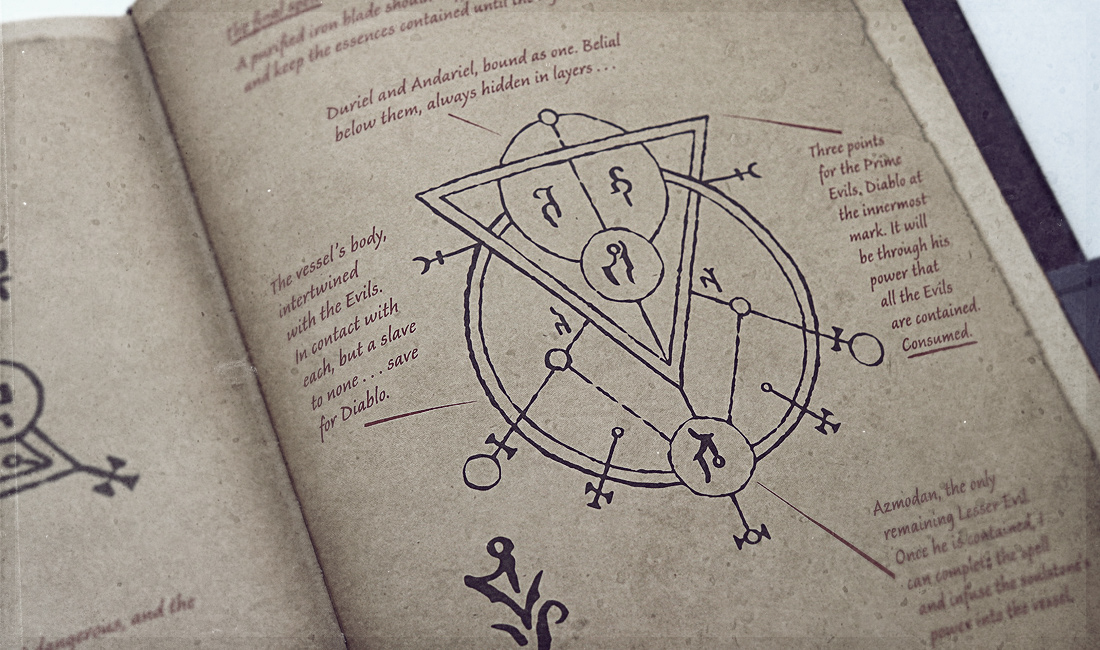 the final spell
A purified iron blade shou
and keep the essences contained until the
Duriel and Andariel, bound as one. Belial
below them, always hidden in layers . . .
Three points
for the Prime
Evils, Diablo at
the innermost
mark. It will
be through his
power that
all the Evils
are contained.
Consumed.
The vessel's body,
intertwined
with the Evils.
In contact with
each, but a slave
to none . . . save
for Diablo.
Azmodan, the only
remaining Lesser Evil.
Once he is contained, I
can complete the spell
and infuse the soulstone's
power into the vessel.
dangerous, and the